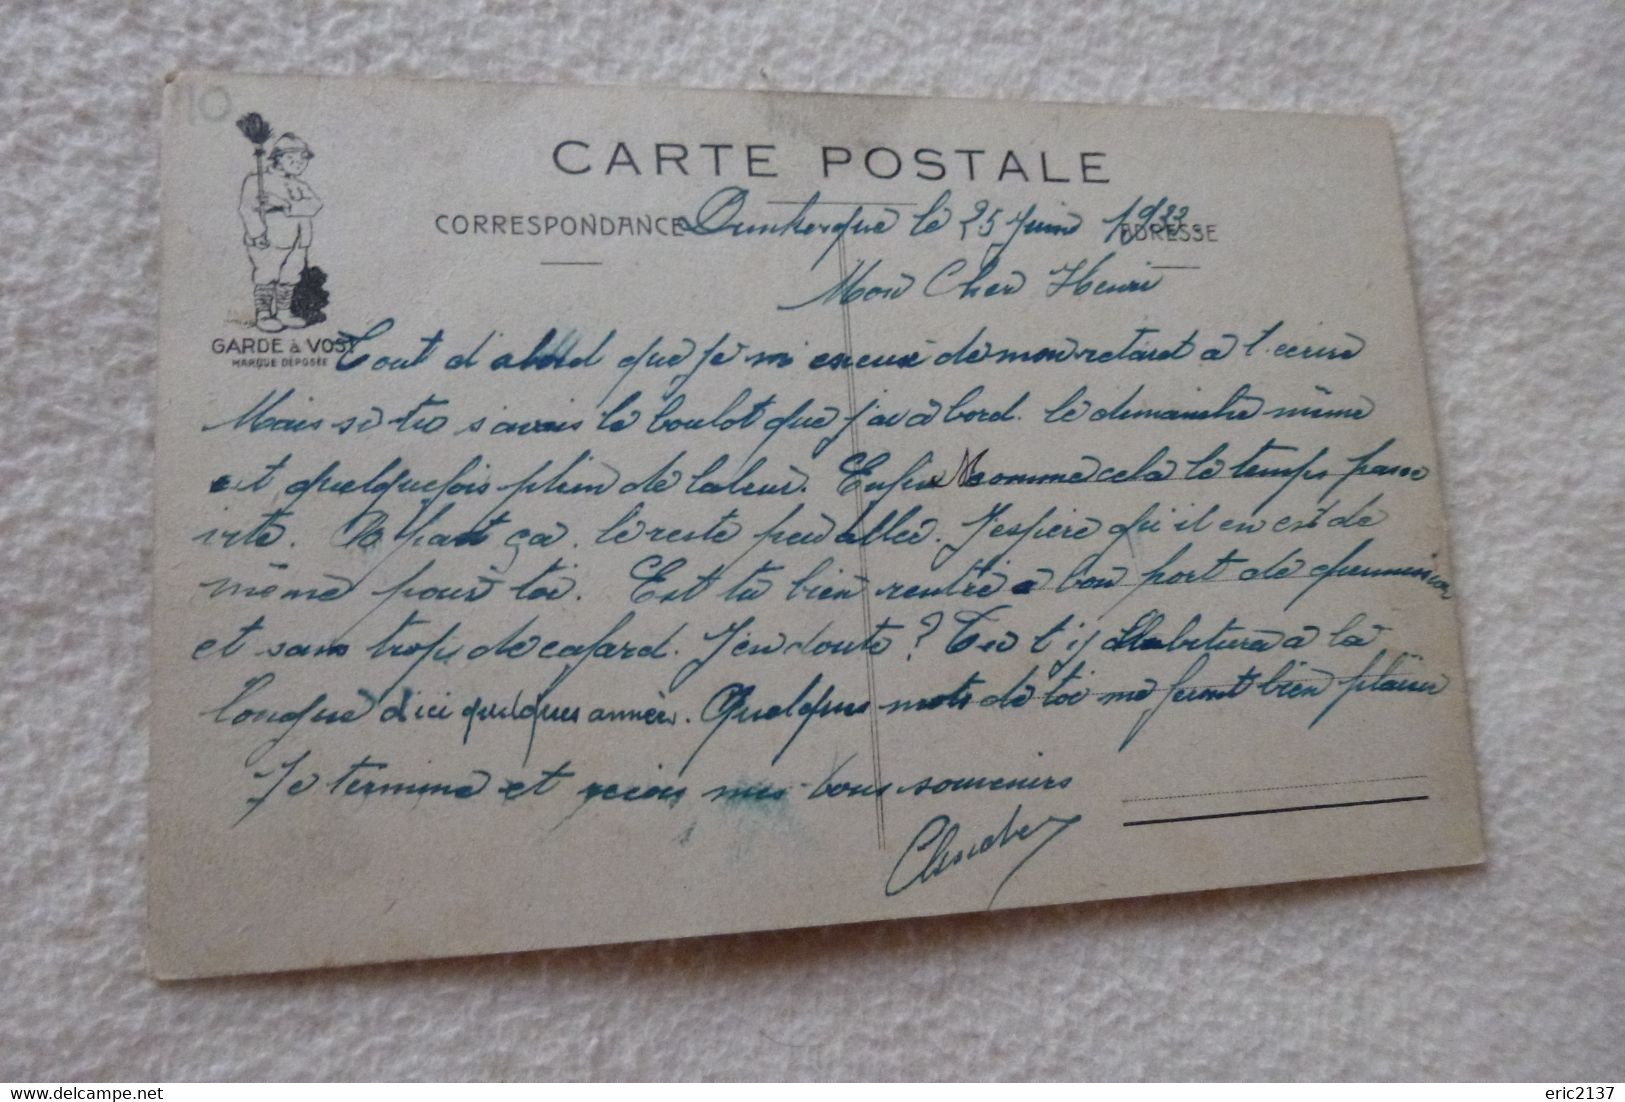 10
CARTE POSTALE
CORRESPONDANCE
ADRESSE
GARDE à VOST
MARQUE DÉPOSÉE
Dunkerque le 25 Juin 1933.
Mon Cher Henri
Tout d'abord que je m'excuse de mon retard à t'ecrire
Mais si tu savais le boulot que j'ai à bord. le dimanche même
et quelquefois plein de la leur. Enfin comme cela le temps passe
vite. A part ça. le reste peu aller. J'espère qu'il en est de
même pour toi. Est tu bien rentré à bon port de permission
et sans trop de cafard. J'en doute? Tu t'y habituera à la
longue d'ici quelques année. Quelques mots de toi me feront bien plaisir
Je termine et reçois mes bons souvenirs
eric2137